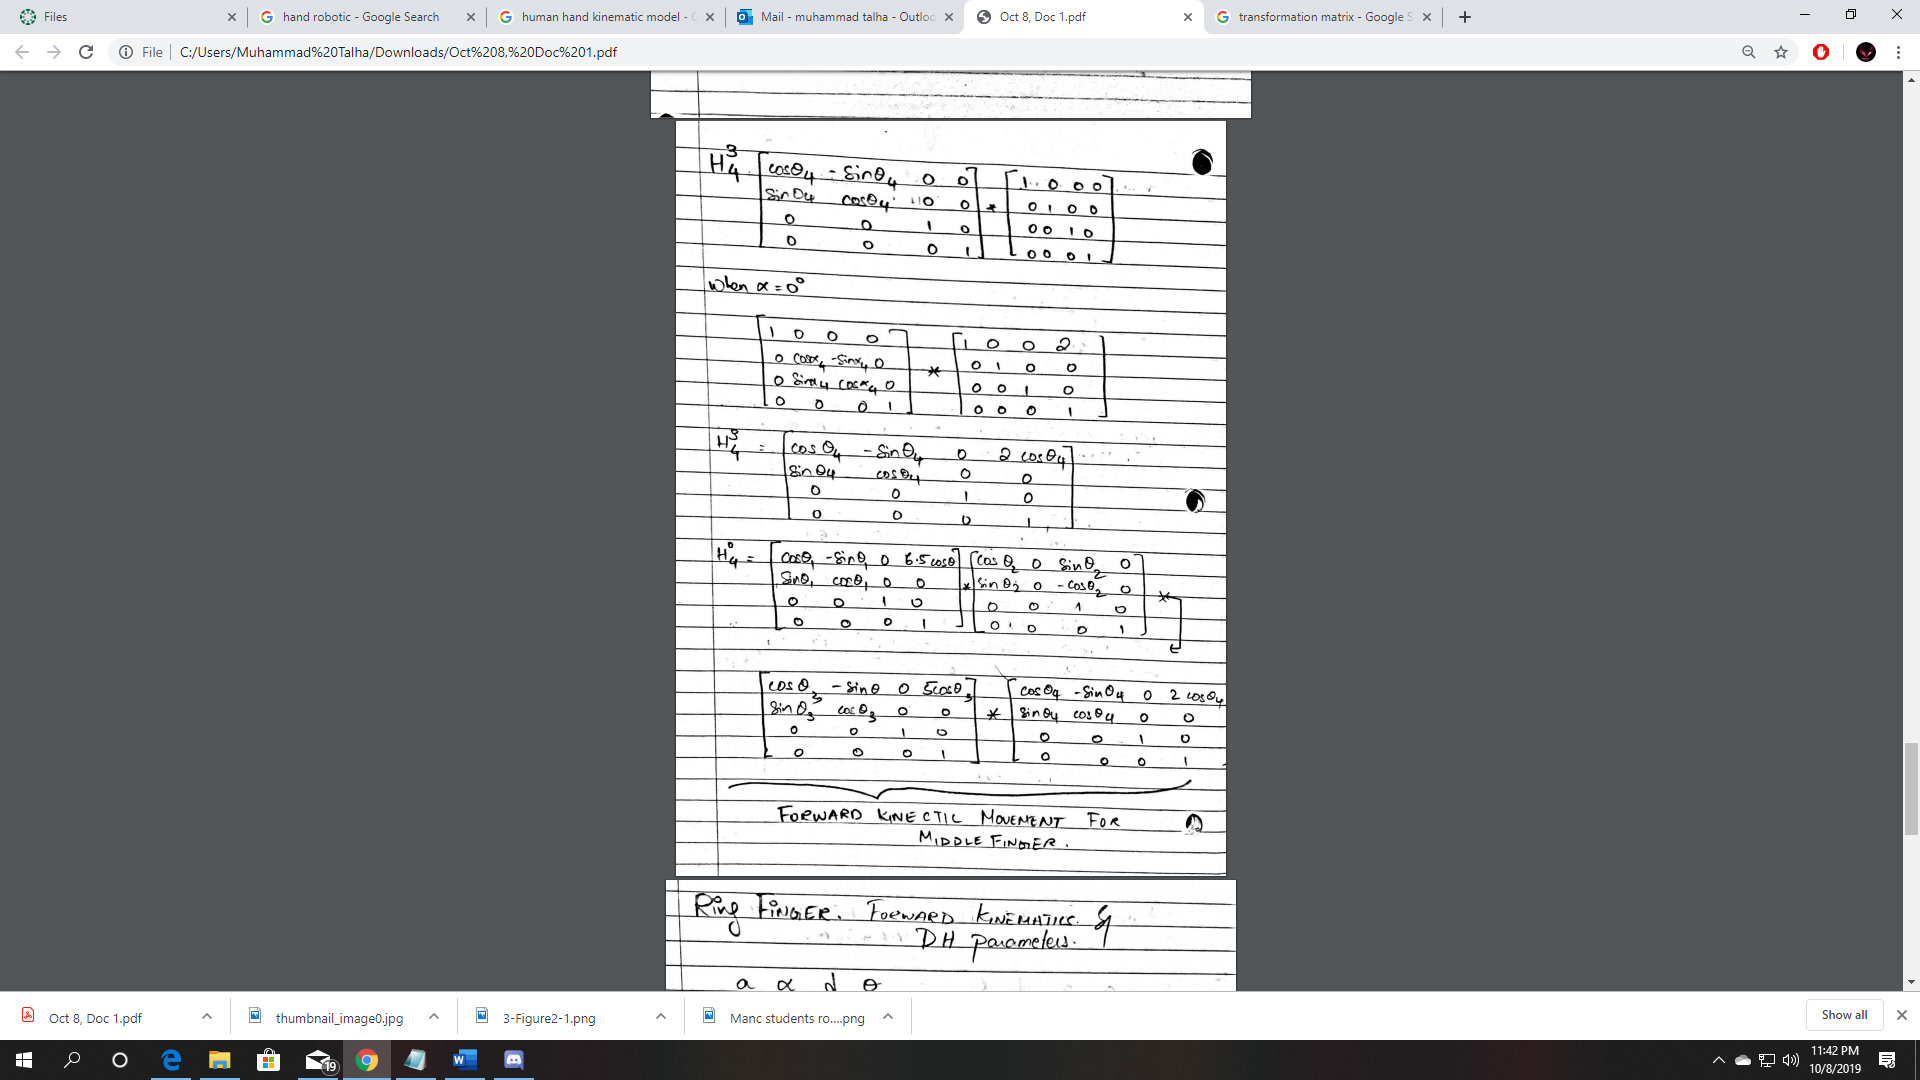 Files
hand robotic - Google Search
human hand kinematic model - G
Mail - muhammad talha - Outloo
Oct 8, Doc 1.pdf
transformation matrix - Google S
File | C:/Users/Muhammad%20Talha/Downloads/Oct%208,%20Doc%201.pdf
H₄³ [cosθ₄ -sinθ₄ 0 0] [1 0 0 0]
sinθ₄ cosθ₄ 0 0 * 0 1 0 0
0 0 1 0 0 0 1 0
0 0 0 1 0 0 0 1
When α = 0°
1 0 0 0 1 0 0 2
0 cosα₄ -sinα₄ 0 * 0 1 0 0
0 sinα₄ cosα₄ 0 0 0 1 0
0 0 0 1 0 0 0 1
H₄³ = cosθ₄ -sinθ₄ 0 2 cosθ₄
sinθ₄ cosθ₄ 0 0
0 0 1 0
0 0 0 1
H₄⁰ = cosθ₁ -sinθ₁ 0 6.5cosθ cosθ₂ 0 sinθ₂ 0
sinθ₁ cosθ₁ 0 0 * sinθ₂ 0 -cosθ₂ 0 *
0 0 1 0 0 0 1 0
0 0 0 1 0 0 0 1
cosθ₃ -sinθ 0 5cosθ₃ cosθ₄ -sinθ₄ 0 2 cosθ₄
sinθ₃ cosθ₃ 0 0 * sinθ₄ cosθ₄ 0 0
0 0 1 0 0 0 1 0
0 0 0 1 0 0 0 1
FORWARD KINECTIC MOVEMENT FOR
MIDDLE FINGER.
Ring FINGER. FORWARD KINEMATICS &
DH parameters.
a α d θ
Oct 8, Doc 1.pdf
thumbnail_image0.jpg
3-Figure2-1.png
Manc students ro....png
Show all
19
11:42 PM
10/8/2019